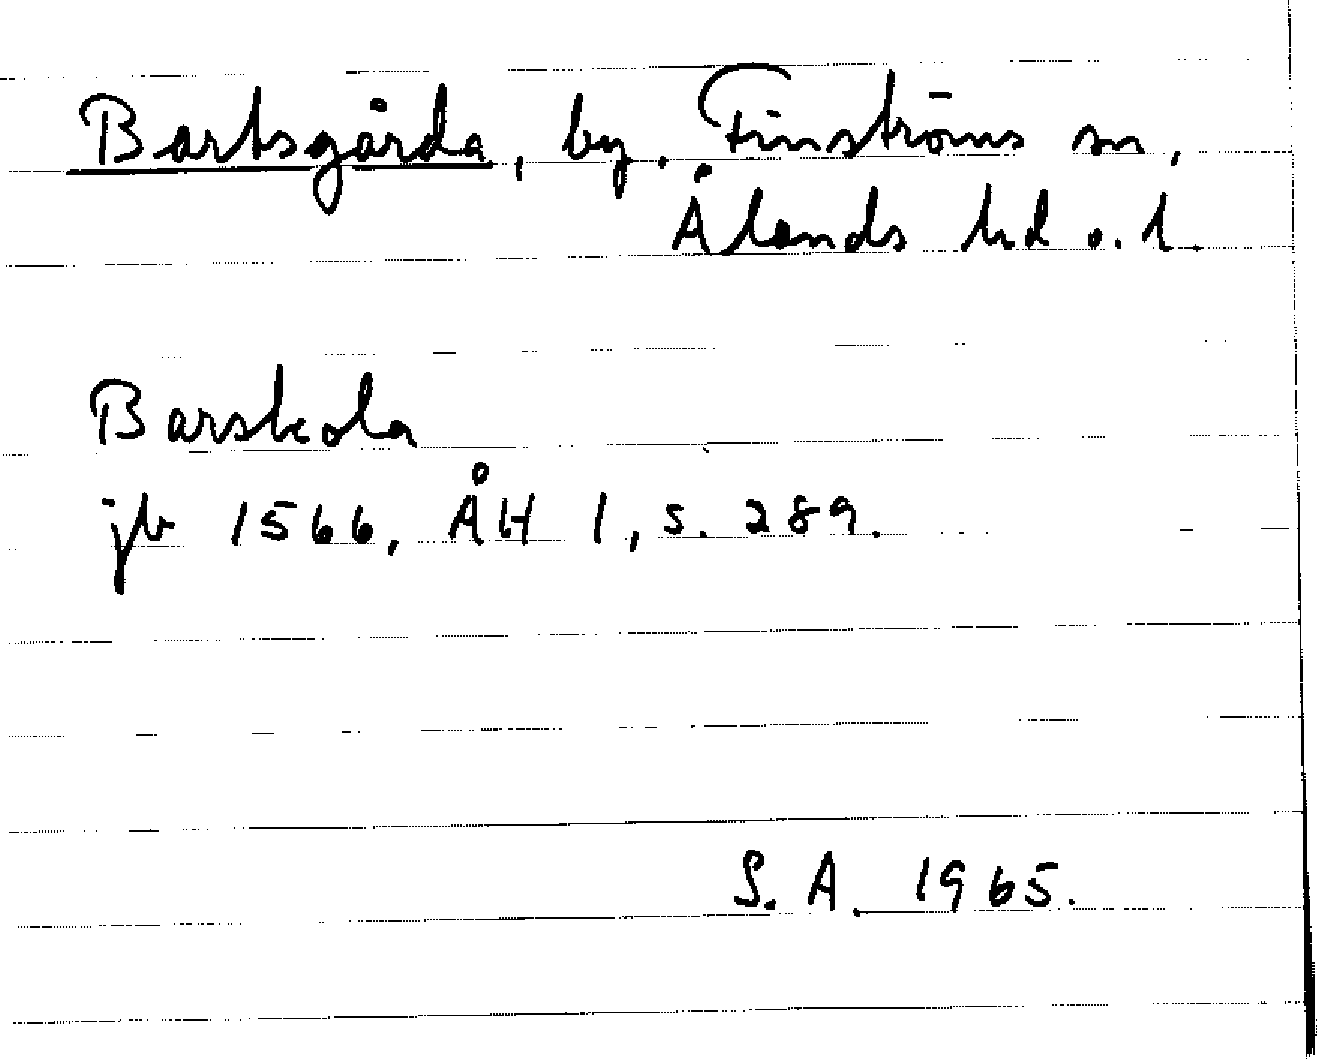 Bartsgårda, by. Finströms sn,
Ålands hd o. l.
Barskola
jb 1566, ÅH 1, s. 289.
S. A. 1965.